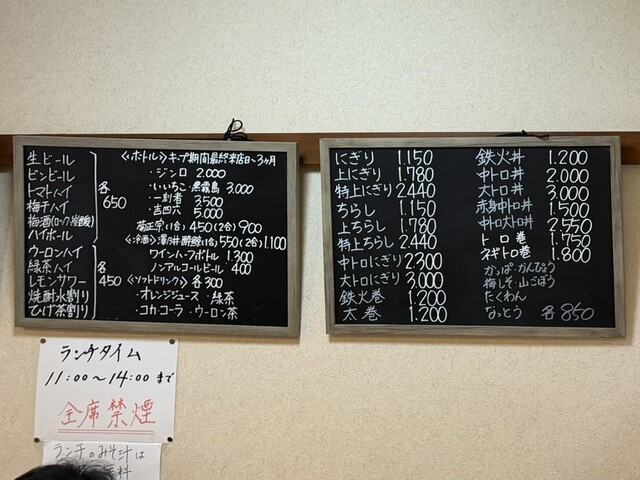 生ビール
ビンビール
トマトハイ
梅干ハイ
梅酒(ロック・炭酸)
ハイボール
各
650
ウーロンハイ
緑茶ハイ
レモンサワー
焼酎水割り
ひげ茶割り
各
450
《ボトル》キープ期間最終来店日〜3ヶ月
・ジンロ 2.000
・いいちこ・黒霧島 3.000
・一刻者 3.500
・吉四六 5.000
菊正宗(1合) 450 (2合) 900
《冷酒》澤乃井酔鯨(1合) 550 (2合) 1.100
ワインハーフボトル 1.300
ノンアルコールビール・400
《ソフトドリンク》各300
・オレンジジュース・緑茶
・コカ・コーラ・ウーロン茶
にぎり 1.150
上にぎり 1.780
特上にぎり 2.440
ちらし 1.150
上ちらし 1.780
特上ちらし 2.440
中トロにぎり 2.300
大トロにぎり 3.000
鉄火巻 1.200
太巻 1.200
鉄火丼 1.200
中トロ丼 2.000
大トロ丼 3.000
赤身中トロ丼 1.500
中トロ大トロ丼 2.550
トロ巻 1.750
ネギトロ巻 1.800
かっぱ・かんぴょう
梅しそ・山ごぼう
たくわん
なっとう 各850
ランチタイム
11:00〜14:00まで
全席禁煙
ランチのみそ汁は
料